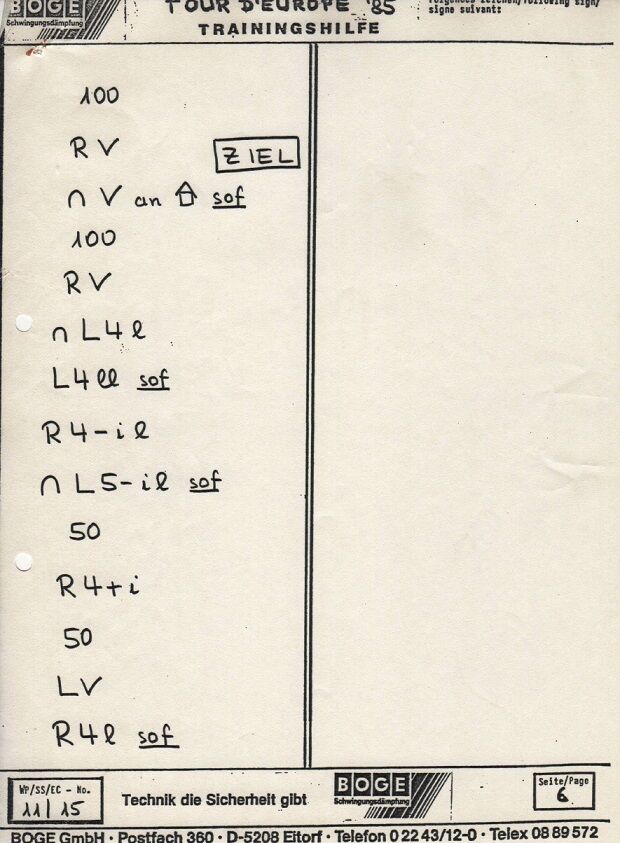 BOGE
Schwingungsdämpfung
TOUR D'EUROPE '85
TRAININGSHILFE
signe suivant:
100
RV
ZIEL
∩ V an sof
100
RV
∩ L4l
L4ll sof
R4-il
∩ L5-il sof
50
R4+i
50
LV
R4l sof
WP/SS/EC - No.
11/15
Technik die Sicherheit gibt
BOGE
Schwingungsdämpfung
Seite/Page
6
BOGE GmbH · Postfach 360 · D-5208 Eitorf · Telefon 0 22 43/12-0 · Telex 08 89 572